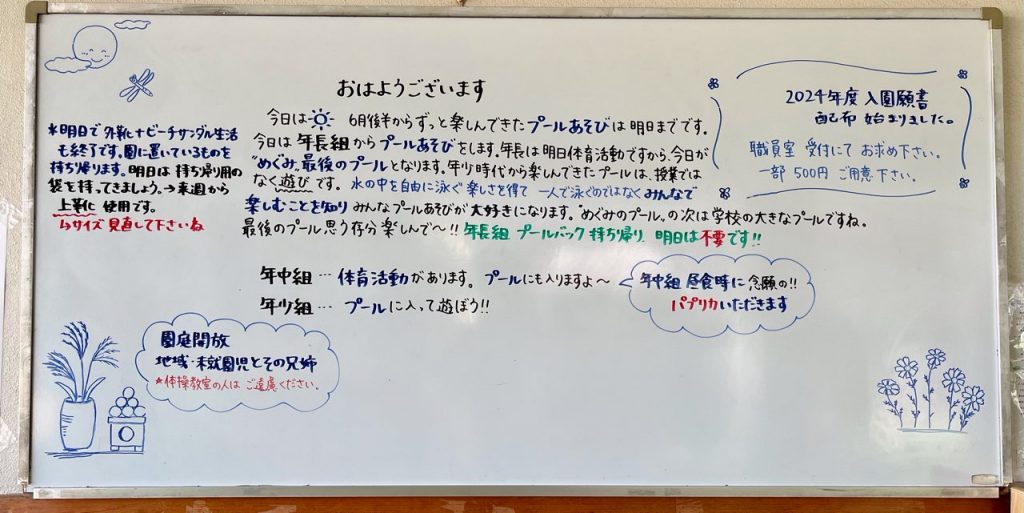 おはようございます
今日は 6月後半からずっと楽しんできたプールあそびは明日までです。
今日は 年長組からプールあそびをします。年長は明日体育活動ですから、今日が
"めぐみ"最後のプールとなります。年少時代から楽しんできたプールは、授業では
なく遊びです。水の中を自由に泳ぐ楽しさを得て 一人で泳ぐのではなくみんなで
楽しむことを知り みんなプールあそびが大好きになります。"めぐみのプール"の次は学校の大きなプールですね。
最後のプール思う存分 楽しんで〜!! 年長組 プールバック 持ち帰り、明日は不要です!!
年中組…体育活動があります。プールにも入りますよ〜
年少組…プールに入って遊ぼう!!
年中組 昼食時に 念願の!!
パプリカいただきます
*明日で 外靴ナビーチサンダル生活
も終了です。園に置いているものを
持ち帰ります。明日は 持ち帰り用の
袋を持ってきましょう。→来週から
上靴 使用です。
↳サイズ 見直して下さいね
2024年度 入園願書
配布 始まりました。
職員室 受付にて お求め下さい。
一部 500円 ご用意下さい。
園庭開放
地域・未就園児とその兄姉
★体操教室の人は ご遠慮ください。